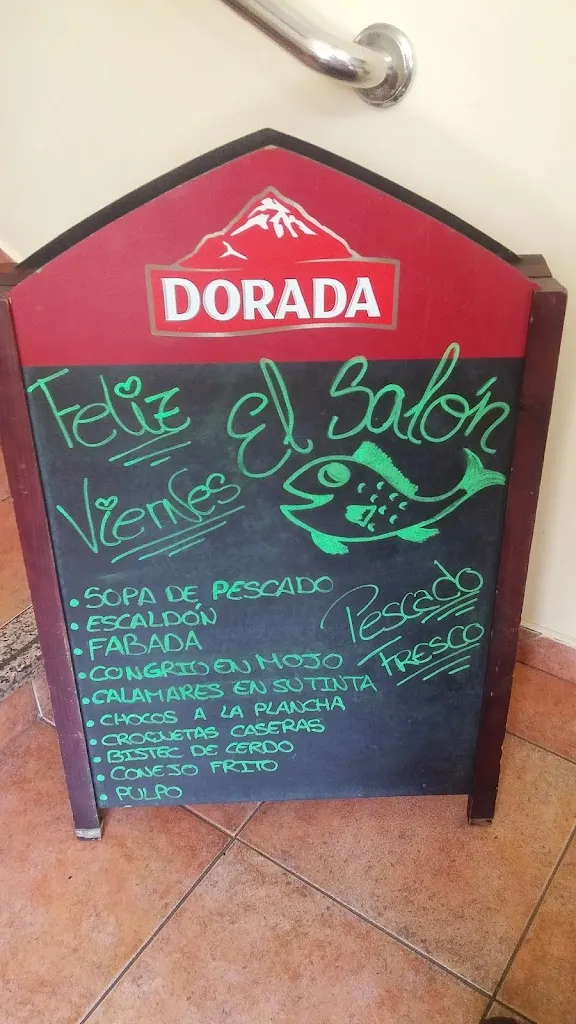 DORADA
Feliz
Viernes
El Salón
• SOPA DE PESCADO
• ESCALDÓN
• FABADA
• CONGRIO EN MOJO
• CALAMARES EN SU TINTA
• CHOCOS A LA PLANCHA
• CROQUETAS CASERAS
• BISTEC DE CERDO
• CONEJO FRITO
• PULPO
Pescado
FRESCO